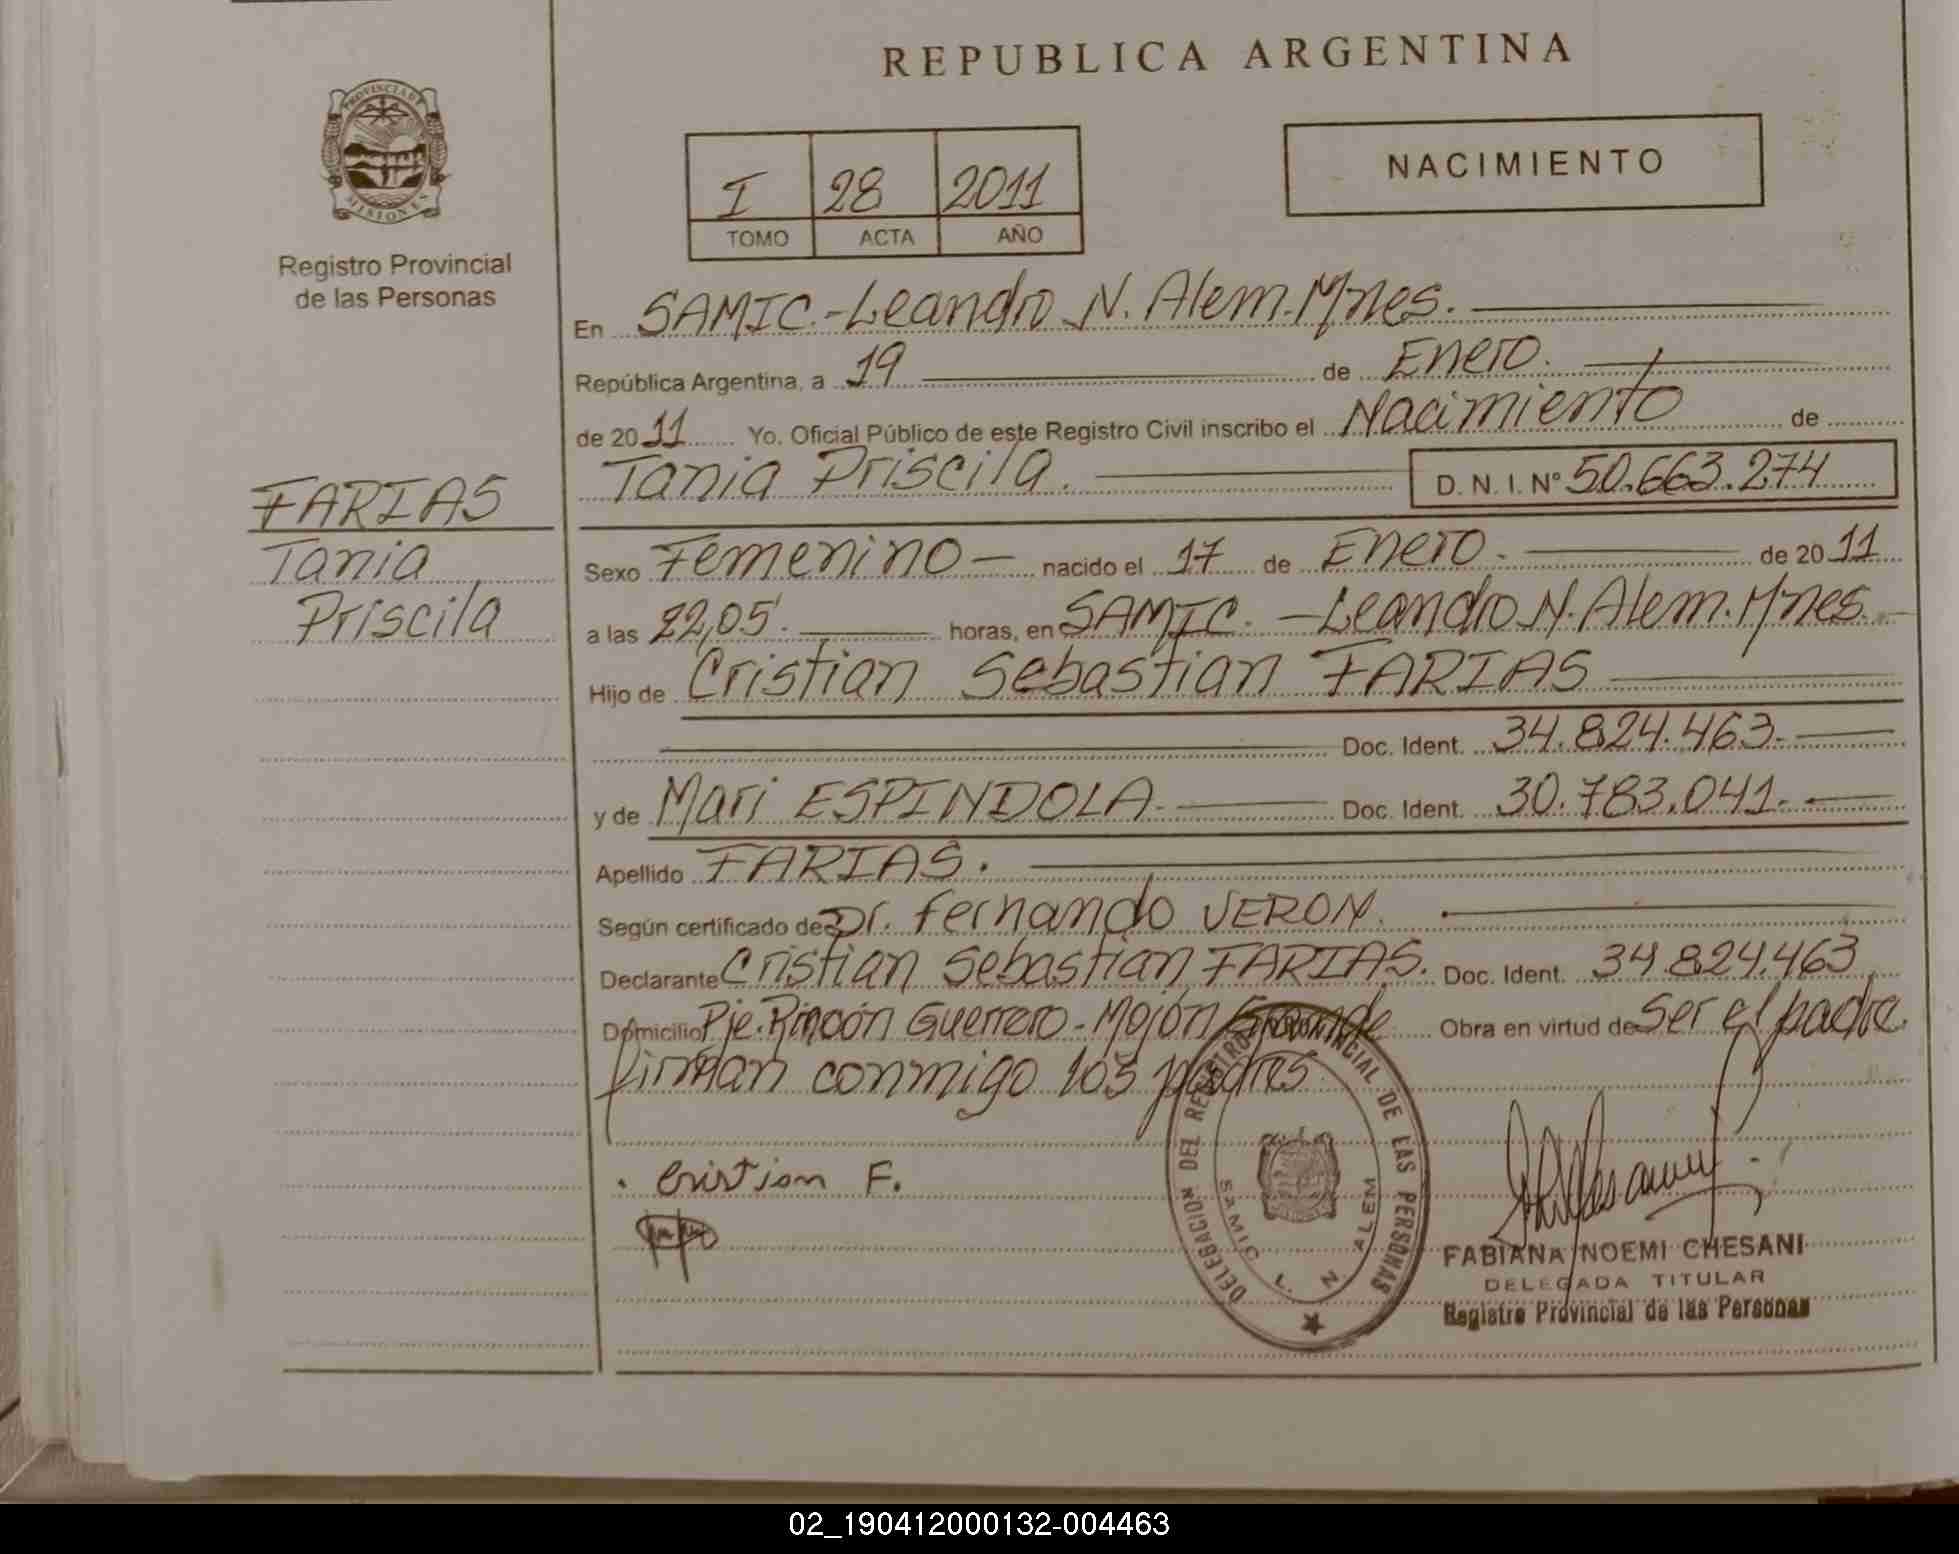 REPUBLICA ARGENTINA
PROVINCIA DE MISIONES
Registro Provincial
de las Personas
I 28 2011
TOMO ACTA AÑO
NACIMIENTO
En SAMIC.-Leandro N. Alem.Mnes.
República Argentina, a 19 de Enero.
de 2011 Yo, Oficial Público de este Registro Civil inscribo el Nacimiento de
Tania Priscila. D. N. I. N° 50.663.274
FARIAS
Tania
Priscila
Sexo Femenino — nacido el 17 de Enero. de 2011
a las 22,05'. horas, en SAMIC. - Leandro N. Alem. Mnes.
Hijo de Cristian Sebastian FARIAS
Doc. Ident. 34.824.463.
y de Mari ESPINDOLA. Doc. Ident. 30.783.041.
Apellido FARIAS.
Según certificado de Dr. Fernando VERON.
Declarante Cristian Sebastian FARIAS. Doc. Ident. 34.824.463
Domicilio Pje. Rincón Guerrero - Mojón Grande Obra en virtud de Ser el padre.
firman conmigo los padres
Cristian F.
DELEGACION DEL REGISTRO PROVINCIAL DE LAS PERSONAS
SAMIC L. N. ALEM
FABIANA NOEMI CHESANI
DELEGADA TITULAR
Registro Provincial de las Personas
02_190412000132-004463